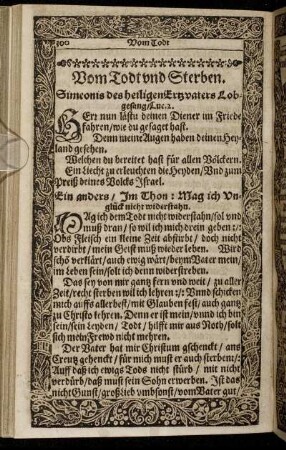 300 Vom Todt
Vom Todt vnd Sterben.
Simeonis des heiligen Ertzvaters Lob-
gesang/Luc.2.
HErr nun lästu deinen Diener im Friede
fahren/wie du gesaget hast.
Denn meine Augen haben deinen Hey-
land gesehen.
Welchen du bereitet hast für allen Völckern.
Ein Liecht zu erleuchten die Heyden/Vnd zum
Preiß deines Volcks Israel.
Ein anders/ Im Thon: Mag ich Vn-
glück nicht widerstahn.
MAg ich dem Todt nicht widerstahn/sol vnd
muß dran/ so wil ich mich drein geben:/:
Obs Fleisch ein kleine Zeit absirbt/ doch nicht
verdirbt/ mein Geist wird wieder leben. Wird
schö verklärt/auch ewig wärt/beym Vater mein/
im Leben sein/solt ich denn widerstreben.
Das sey von mir gantz fern vnd weit/ zu aller
Zeit/recht sterben wil ich lehren:/: Vnnd schicken
mich auffs allerbest/mit Glauben fest/auch gantz
zu Christo kehren. Denn er ist mein/vnnd ich bin
sein/sein Leyden/ Todt/ hilfft mir aus Noth/solt
sich mein Frewd nicht mehren.
Der Vater hat mir Christum gschenckt/ ans
Creutz gehenckt/ für mich must er auch sterben:/:
Auff daß ich ewigs Tods nicht stürb/ mit nicht
verdürb/daß must sein Sohn erwerben. Ist das
nicht Gunst/groß lieb vmbsonst/vom Vater gut/